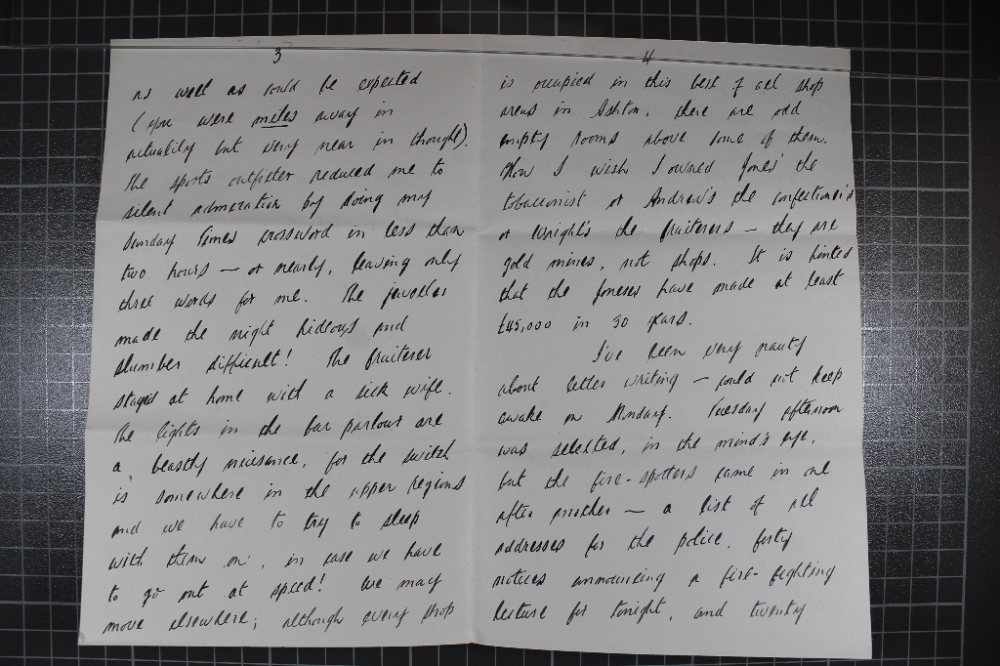 3
as well as could be expected
(you were miles away in
actuality but very near in thought).
The sports outfitter reduced me to
silent admiration by doing my
Sunday Times crossword in less than
two hours — or nearly, leaving only
three words for me. The jeweller
made the night hideous and
slumber difficult! The fruiterer
stayed at home with a sick wife.
The lights in the bar parlour are
a beastly nuisance, for the switch
is somewhere in the upper regions
and we have to try to sleep
with them on, in case we have
to go out at speed! We may
move elsewhere; although every shop
4
is occupied in this best of all shop
areas in Ashton, there are odd
empty rooms above some of them.
How I wish I owned Jones' the
tobacconist or Andrew's the confectioner's
or Wright's the fruiterers — they are
gold mines, not shops. It is hinted
that the Joneses have made at least
£45,000 in 30 years.
I've been very nauty
about letter writing — could not keep
awake on Monday. Tuesday afternoon
was selected, in the mind's eye,
but the fire-spotters came in one
after another — a list of all
addresses for the police, forty
notices announcing a fire-fighting
lecture for tonight, and twenty